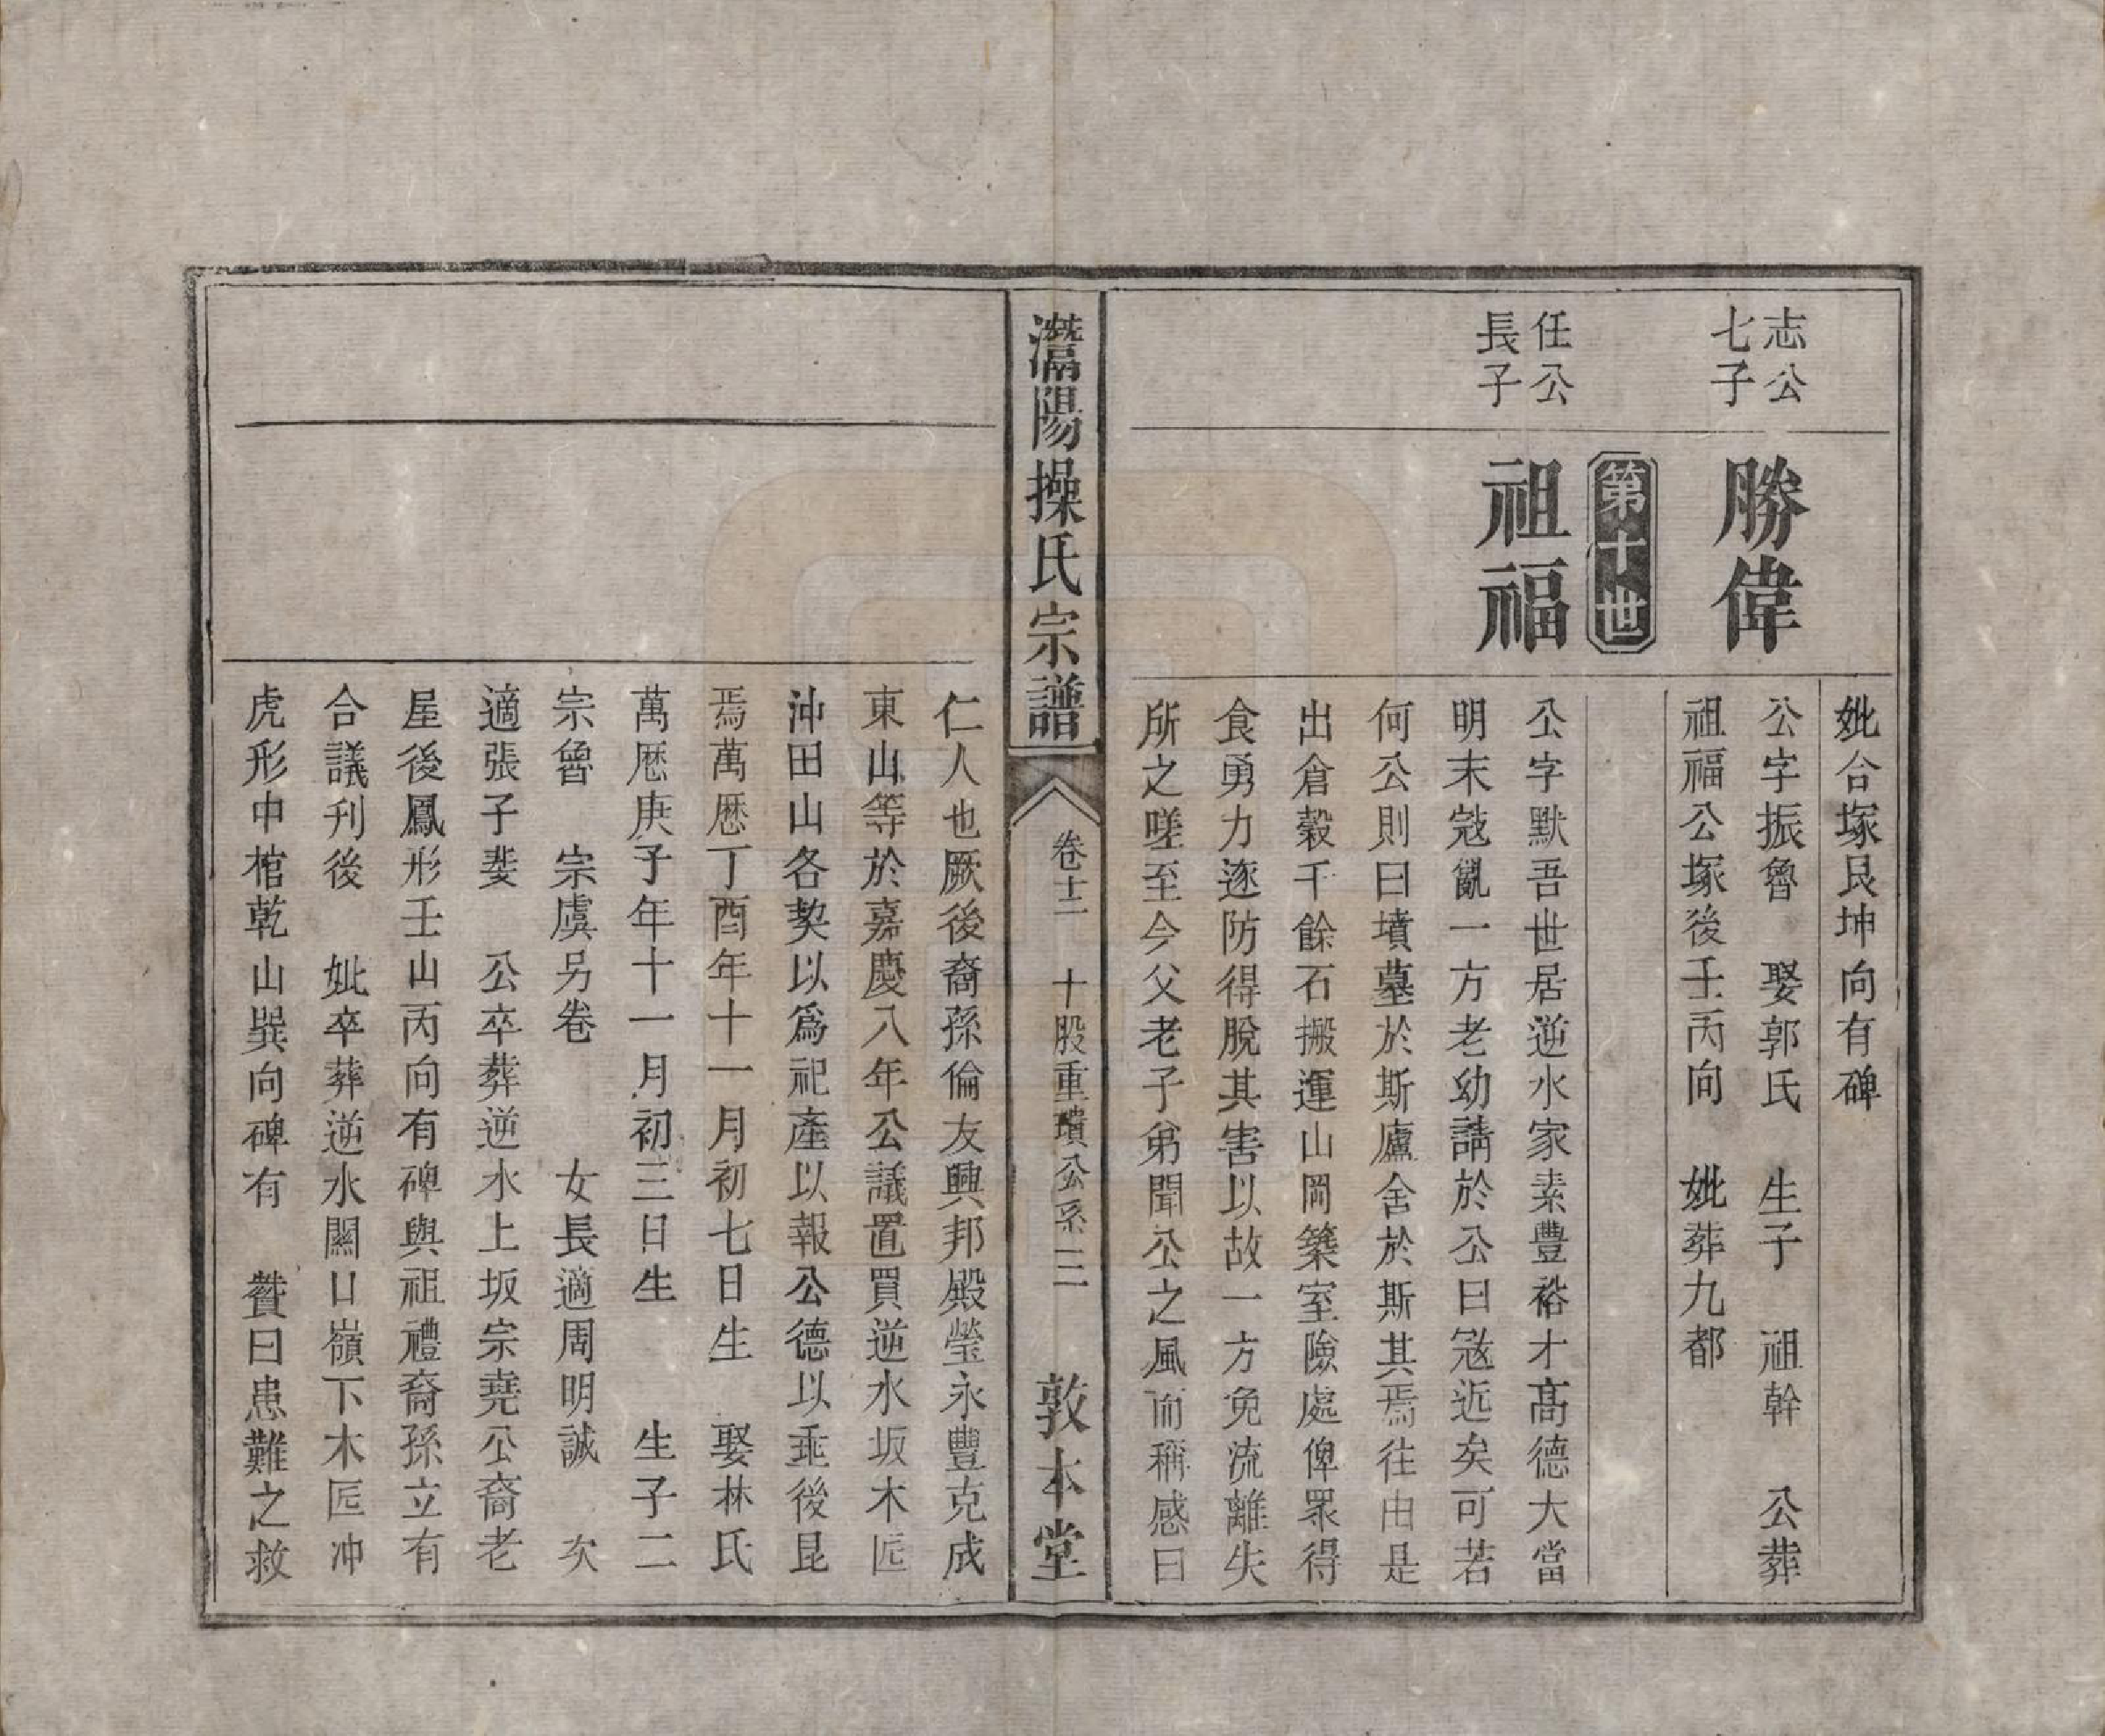 妣合塚艮坤向有碑
志公
七子
勝偉
公字振魯　娶郭氏　生子　祖幹　公葬
祖福公塚後壬丙向　妣葬九都
第十世
任公
長子
祖福
公字默吾世居逆水家素豐裕才高德大當
明末宼亂一方老幼請於公曰宼近矣可若
何公則曰墳墓於斯廬舍於斯其焉往由是
出倉穀千餘石搬運山岡築室險處俾眾得
食勇力逐防得脫其害以故一方免流離失
所之嗟至今父老子弟聞公之風而稱感曰
灊陽操氏宗譜
卷十二　十股重璝公系　三
敦本堂
仁人也厥後裔孫倫友興邦殿瑩永豐克成
東山等於嘉慶八年公議置買逆水坂木匠
沖田山各契以為祀產以報公德以垂後昆
焉萬厯丁酉年十一月初七日生　娶林氏
萬厯庚子年十一月初三日生　　生子二
宗魯　宗虞另卷　　女長適周明誠　次
適張子斐　公卒葬逆水上坂宗堯公裔老
屋後鳳形壬山丙向有碑與祖禮裔孫立有
合議刊後　妣卒葬逆水闗口嶺下木匠沖
虎形中棺乾山巽向碑有　贊曰患難之救